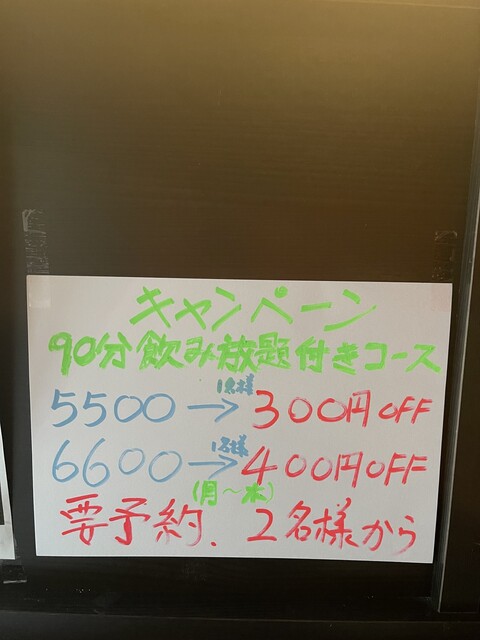 キャンペーン
90分飲み放題付きコース
1名様
5500→300円OFF
1名様
6600→400円OFF
(月～木)
要予約、2名様から